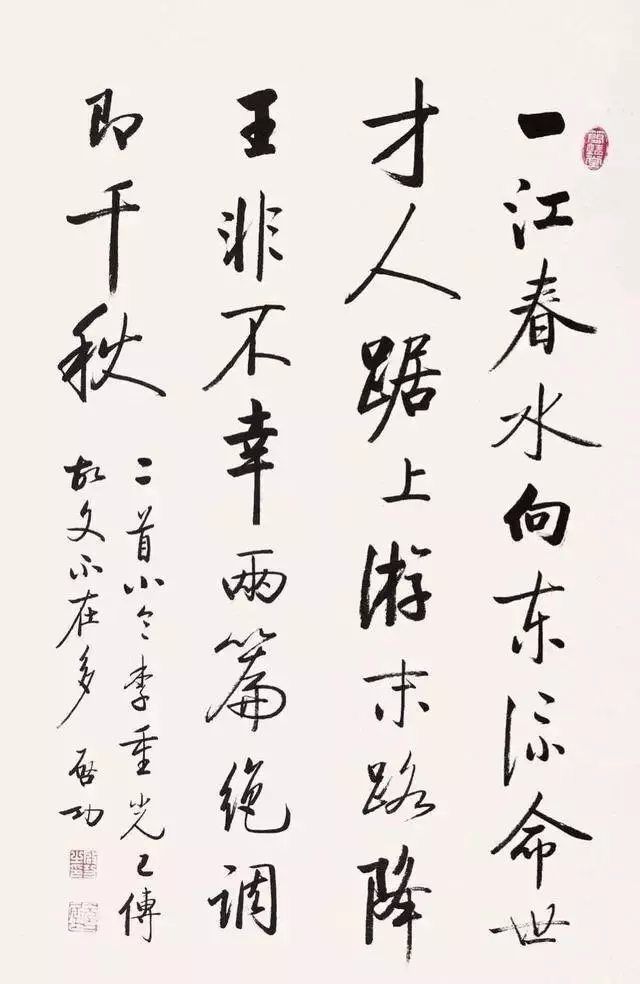 一江春水向东流命世
才人踞上游末路降
王非不幸兩篇绝调
即千秋
二首小令李重光已傳
故文不在多 启功